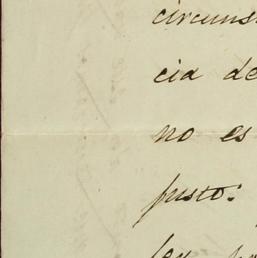 circuns
cia de
no es
justo: